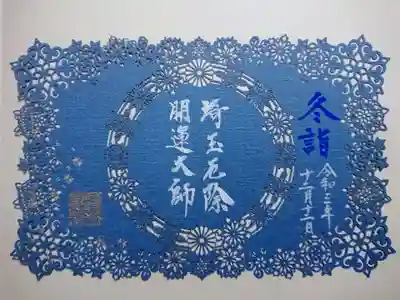 冬詣
令和三年
十二月十一日
埼玉厄除
開運大師